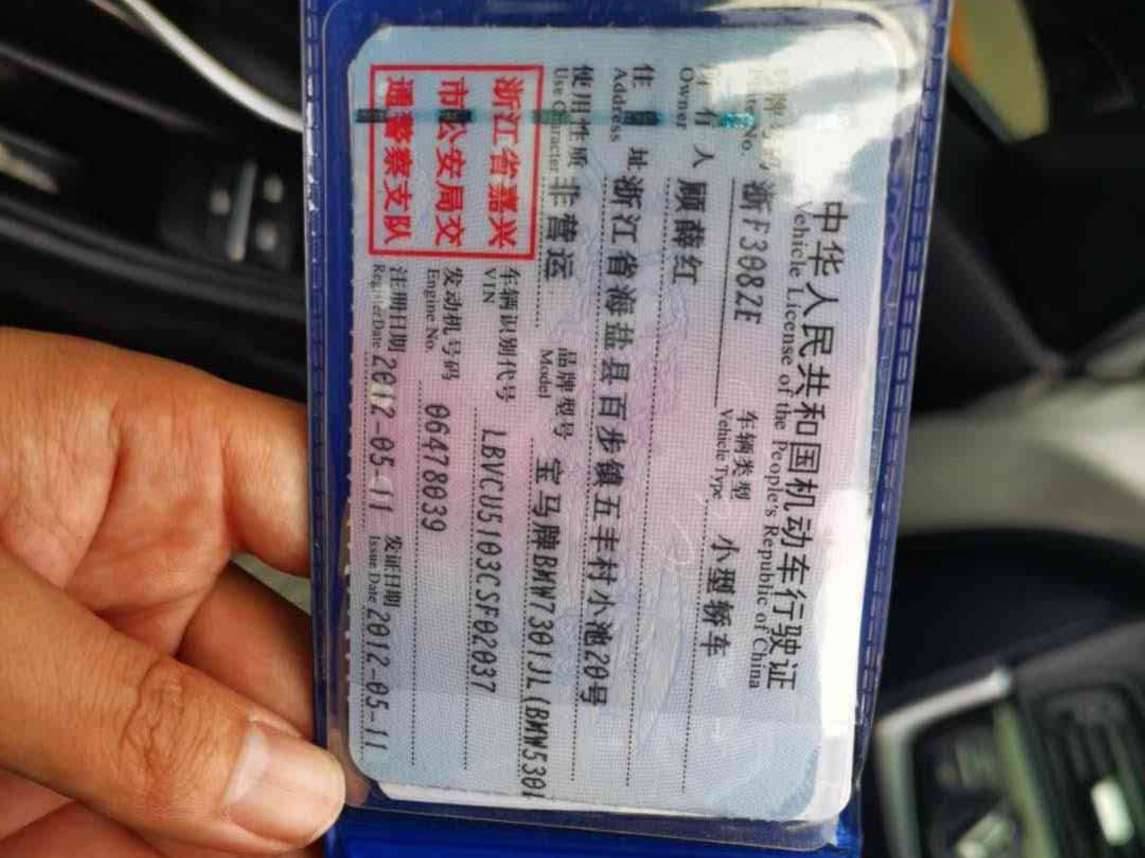 中华人民共和国机动车行驶证
Vehicle License of the People's Republic of China
浙F3082E 车辆类型 小型轿车
Vehicle Type
人 顾薛红
Owner
住 址 浙江省海盐县百步镇五丰村小池20号
Address
使用性质 非营运 品牌型号 宝马牌BMW7301JL(BMW530
Use Character Model
浙江省嘉兴
市公安局交
通警察支队
车辆识别代号 LBVCU5103CSF02037
VIN
发动机号码 06478039
Engine No.
注册日期 2012-05-11 发证日期 2012-05-11
Register Date Issue Date